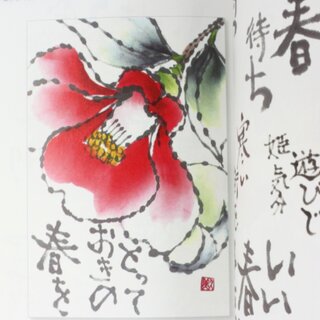 とって
おきの
春を
いい
春
遊びで
姫気分
春
待ち
寒い